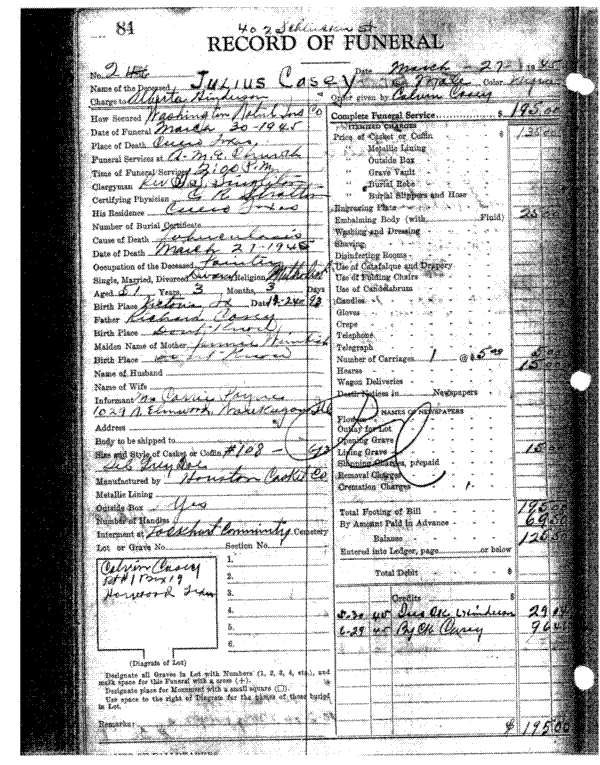 84
402
RECORD OF FUNERAL
No. 2 Date March - 27 - 1945
Name of the Deceased Julius Casey Male Color
Charge to Alberta Hinderson Order given by Calvin Casey
How Secured Washington Ins Co
Date of Funeral March 30-1945
Place of Death Cuero Texas
Funeral Services at A. M. E. Church
Time of Funeral Service 2:00 P.M.
Clergyman Rev
Certifying Physician
His Residence Cuero Texas
Number of Burial Certificate
Cause of Death Tuberculosis
Date of Death March 27-1945
Occupation of the Deceased
Single, Married, Divorced Religion Methodist
Aged 51 Years, 3 Months, 3 Days
Birth Place Victoria Tx Date 12-24-93
Father Richard Casey
Birth Place Dont Know
Maiden Name of Mother
Birth Place Dont Know
Name of Husband
Name of Wife
Informant Mrs Carrie Haynes
1029 N. Elmwood, Waukegan Ill
Address
Body to be shipped to
Size and Style of Casket or Coffin #108 -
Manufactured by Houston Casket Co
Metallic Lining
Outside Box Yes
Number of Handles
Interment at Lockhart Community Cemetery
Lot or Grave No. Section No.
Calvin Casey
Rt #1 Box 19
Harwood Texas
1.
2.
3.
4.
5.
6.
(Diagram of Lot)
Designate all Graves in Lot with Numbers (1, 2, 3, 4, etc.), and
mark space for this Funeral with a cross (+).
Designate place for Monument with a small square (□).
Use space to the right of Diagram for the names of those buried
in Lot.
Remarks:
Complete Funeral Service $ 195.00
ITEMIZED CHARGES
Price of Casket or Coffin $ 135.00
" Metallic Lining
" Outside Box
" Grave Vault
" Burial Robe
" Burial Slippers and Hose
Engraving Plate
Embalming Body (with Fluid) 25.00
Washing and Dressing
Shaving
Disinfecting Rooms
Use of Catafalque and Drapery
Use of Folding Chairs
Use of Candelabrum
Candles
Gloves
Crepe
Telephone
Telegraph
Number of Carriages 1 @ $5.00 5.00
Hearse 15.00
Wagon Deliveries
Death Notices in Newspapers
NAMES OF NEWSPAPERS
Flowers
Outlay for Lot
Opening Grave
Lining Grave 15.00
Shipping Charges, prepaid
Removal Charges
Cremation Charges
Total Footing of Bill 195.00
By Amount Paid in Advance
Balance
Entered into Ledger, page or below
Total Debit $
Credits $
5-30 45 Ins Ck Hinderson
6-29 45 By Ck Casey
$ 195.00